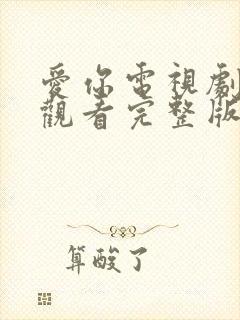 愛你電視劇
觀看完整版
算酸了